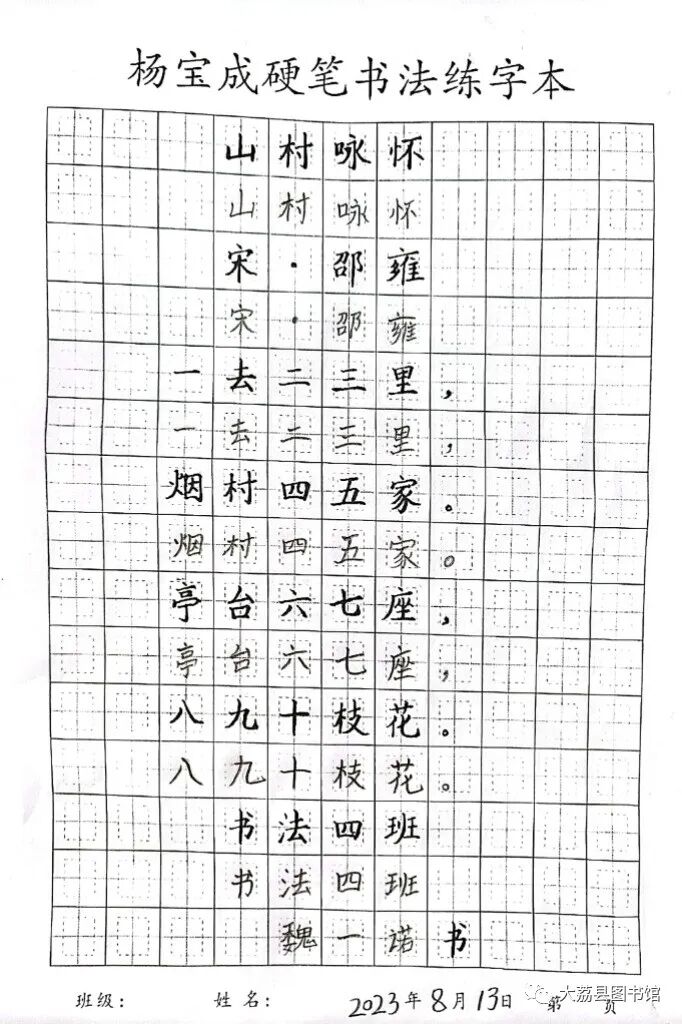 杨宝成硬笔书法练字本
山村咏怀
山村咏怀
宋·邵雍
宋·邵雍
一去二三里，
一去二三里，
烟村四五家。
烟村四五家。
亭台六七座，
亭台六七座，
八九十枝花。
八九十枝花。
书法四班
书法四班
魏一诺书
班级： 姓名： 2023年8月13日 第 页
大荔县图书馆